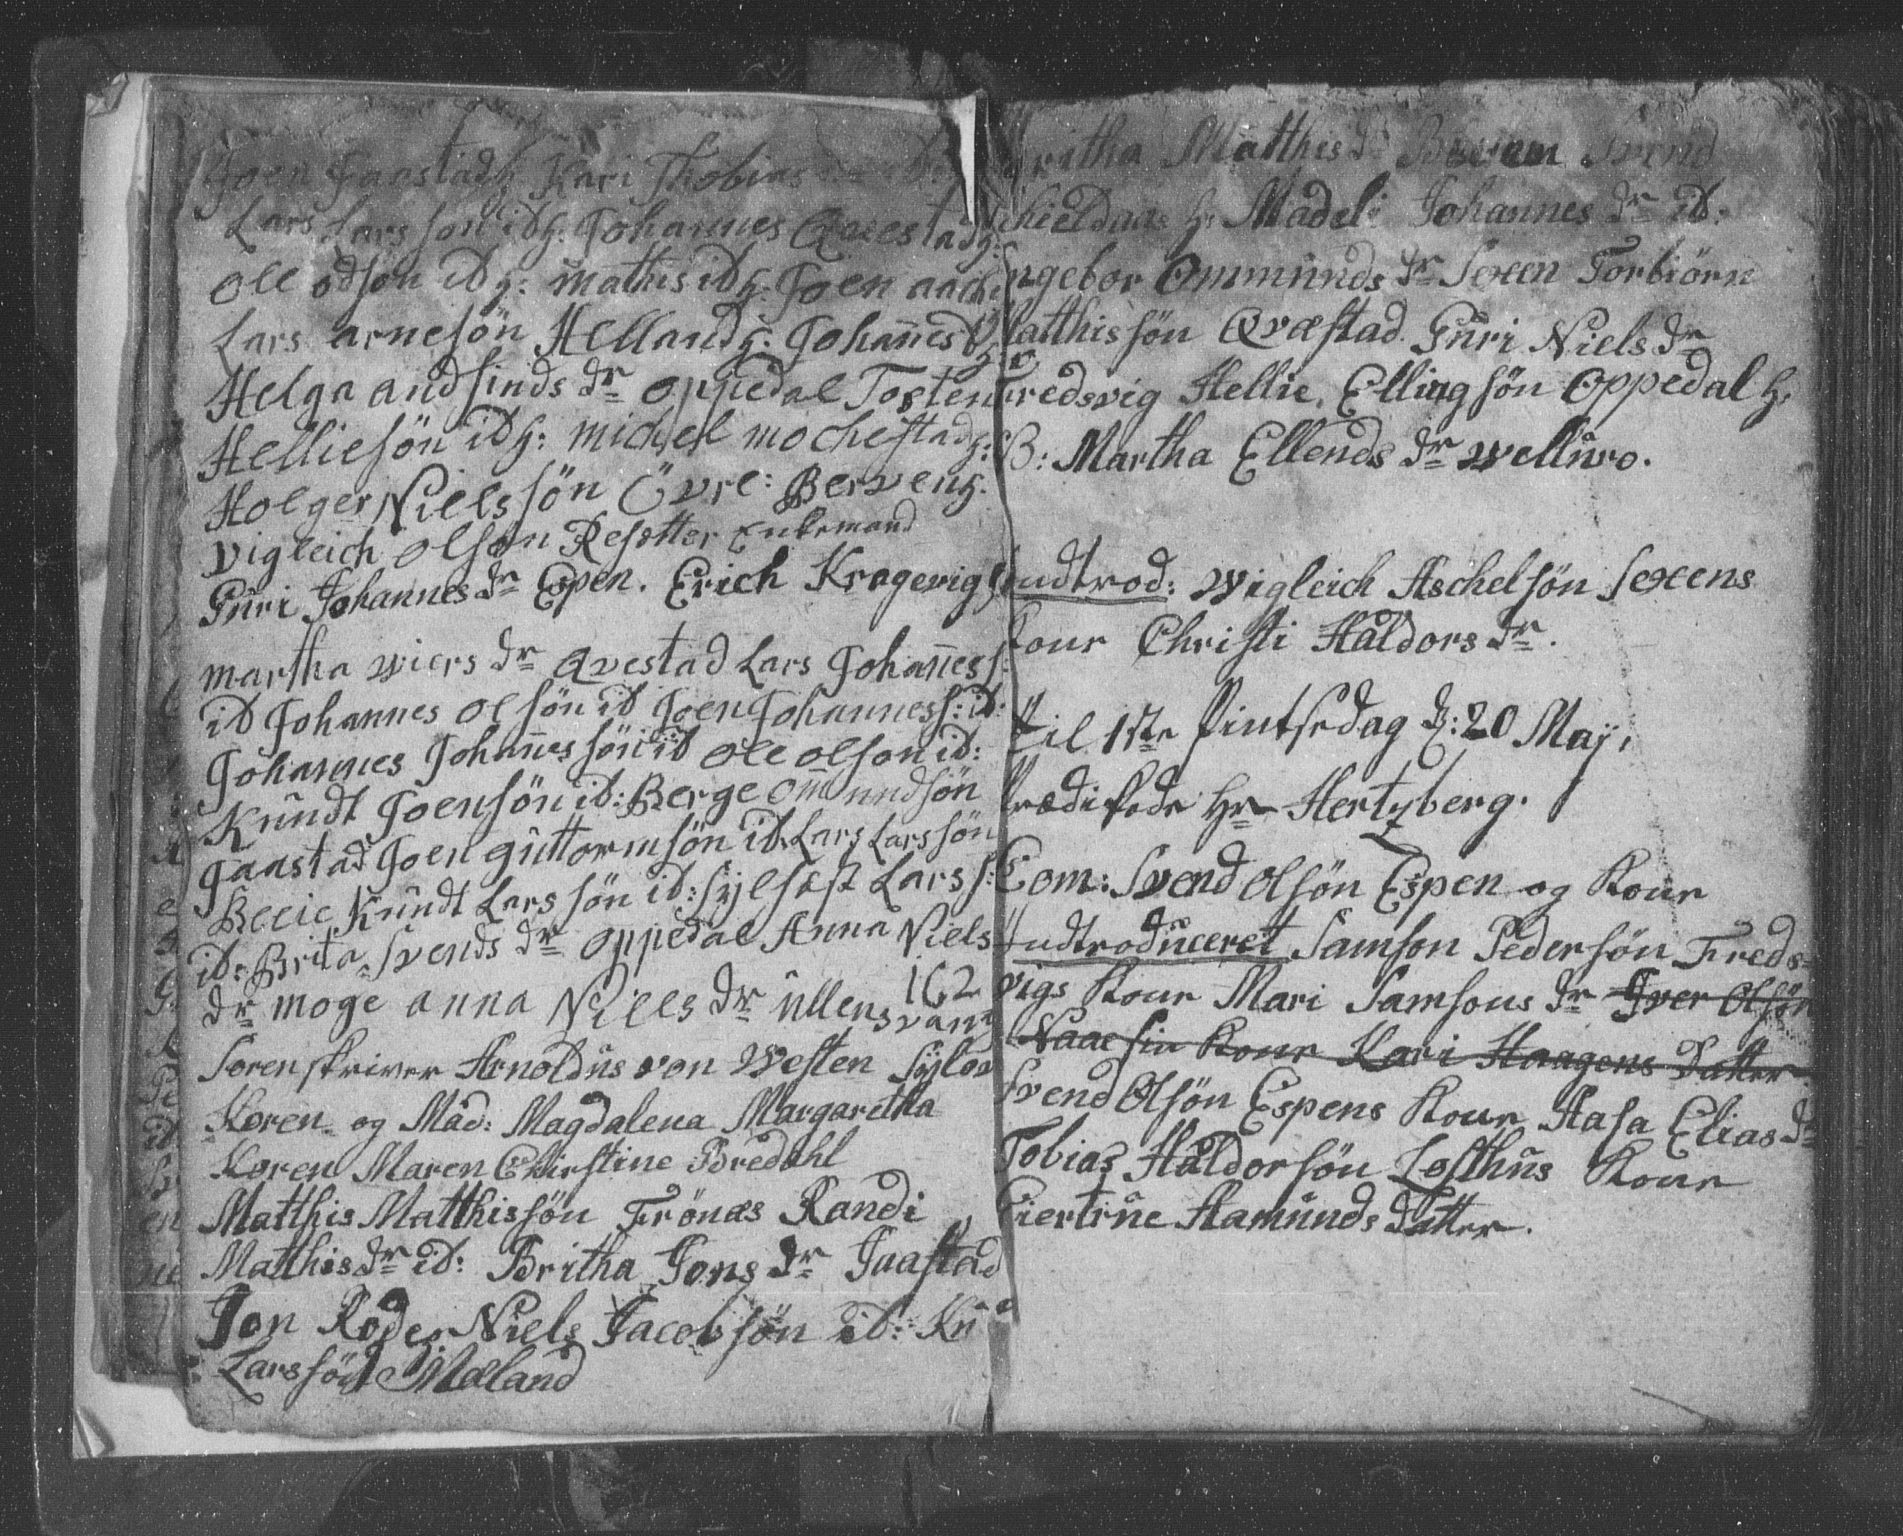 Joen Jaastad hȝ: Kari Thobias
Lars Larssön idhȝ: Johannes Qvestadhȝ:
Ole odsön idhȝ: mathis idhȝ: Joen
Lars arnesön Hellandhȝ: Johannes
Helga andfinds dr oppedal Tosten
Helliesön idhȝ: michel mochestadhȝ:
Holger Nielssön Övre: Bervenhȝ.
vigleich olsön Resetter Enkemand
Guri Johannes dr Espen. Erich Kragevig
martha wiers dr Qvestad Lars Johannes s:
id Johannes olsön id Joen Johannes s: id:
Johannes Johannessön id ole olson id:
Kundt Joensön id: Berge ommundsön
Jaastad Joen guttormsön id Lars Larssön
Kundt Larssön id: Sylfæst Lars s:
id: Brita Svends dr oppedal Anna Niels
dr moge anna Niels dr ullensvang
162
Sorenskriver Arnoldus von Westen Sylow
Koren og Mad: Magdalena Margaretha
Koren Maren Chirstine Bredahl
Matthis Matthissön Frönæs Randi
Matthis dr id: Britha Jons dr Jaastad
Jon Rode Niels Jacobsön id:
Larssön Mæland
ritha Matthis dr Svend
hȝ: Madeli Johannes dr id:
Ingebor Ommunds dr Sexen Torbiörn
Matthissön Qvæstad. Guri Niels dr
Fredsvig Hellie Ellingsön Oppedal hȝ.
B: Martha Ellends dr Velluro.
Indtrod: Wigleich Aschelsön Sexens
Kone Christi Haldors dr.
Til 1ste Pintsedag d: 20 Maij,
Prædikede Hr Hertzberg.
Com: Svend Olsön Espen og Kone
Indtroduceret Samson Pedersön Freds-
vigs Kone Mari Samsons dr Iver Olsön
Naae sin Kone Kari Haagens Datter
Svend Olsön Espens Kone Aasa Elias dr
Tobias Haldorsön Lofthus Kone
Giertrue Aamunds datter.